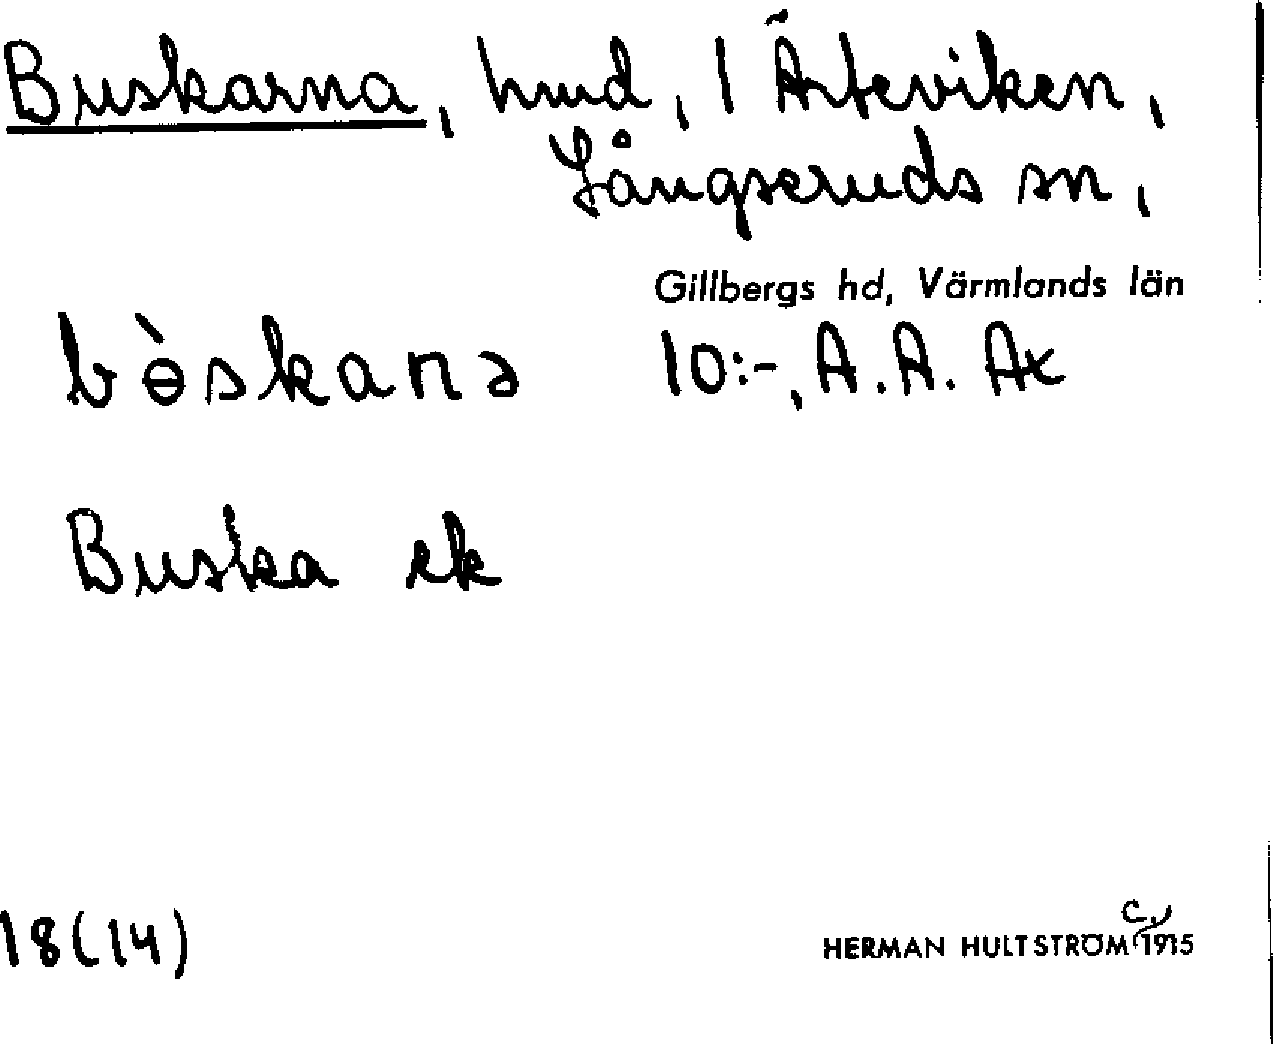 Buskarna, hmd, 1 Ärteviken,
Långseruds sn,
Gillbergs hd, Värmlands län
bòskanə 10:-, A.A. Ac
Buska ek
18(14)
c.
HERMAN HULTSTRÖM 1915